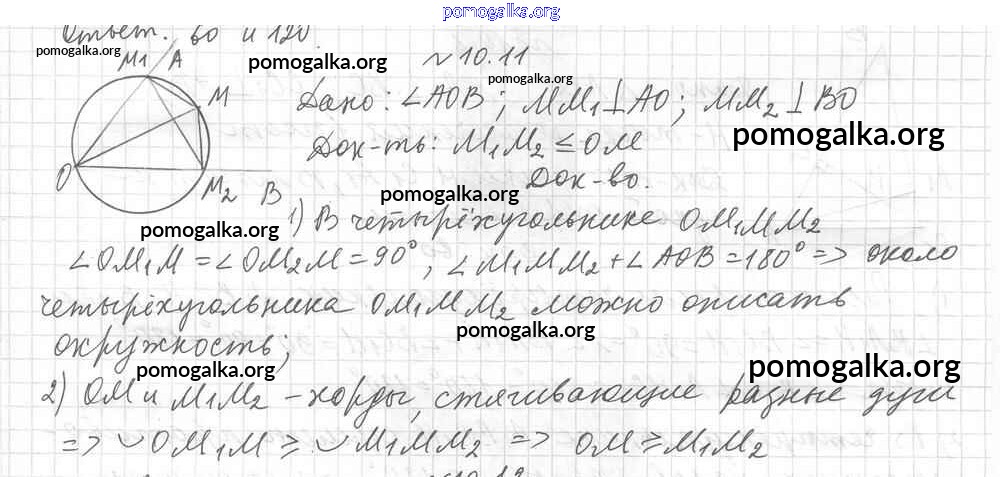 pomogalka.org
Ответ. 60 и 120.
pomogalka.org
M1 A
pomogalka.org
№10.11
pomogalka.org
M
Дано: ∠AOB; MM1⊥AO; MM2⊥BO
pomogalka.org
Док-ть: M1M2 ≤ OM
O
M2 B
pomogalka.org
Док-во.
pomogalka.org
1) В четырёхугольнике OM1MM2
pomogalka.org
∠OM1M = ∠OM2M = 90°, ∠M1MM2 + ∠AOB = 180° => около
четырёхугольника OM1MM2 можно описать
pomogalka.org
окружность;
pomogalka.org
pomogalka.org
2) OM и M1M2 – хорды, стягивающие разные дуги
=> ◡OM1M ≥ ◡M1MM2 => OM ≥ M1M2